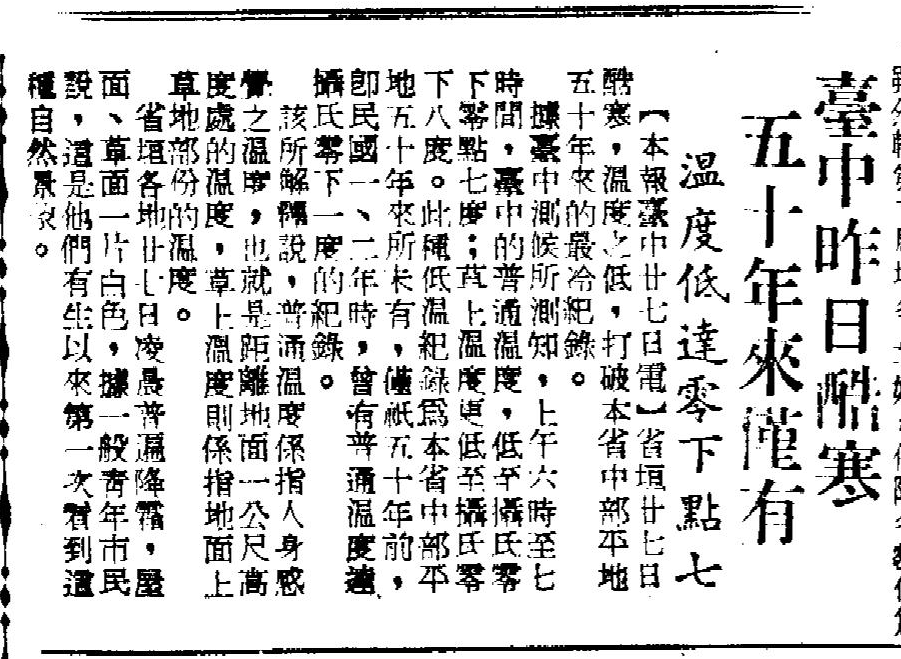 臺中昨日酷寒
五十年來僅有
溫度低達零下點七
【本報臺中廿七日電】省垣廿七日
酷寒，溫度之低，打破本省中部平地
五十年來的最冷紀錄。
據臺中測候所測知，上午六時至七
時間，臺中的普通溫度，低至攝氏零
下零點七度；草上溫度更低至攝氏零
下八度。此種低溫紀錄為本省中部平
地五十年來所未有，僅祇五十年前，
卽民國一、二年時，曾有普通溫度達
攝氏零下一度的紀錄。
該所解釋說，普通溫度係指人身感
覺之溫度，也就是距離地面一公尺高
度處的溫度，草上溫度則係指地面上
草地部份的溫度。
省垣各地廿七日凌晨普遍降霜，屋
面、草面一片白色，據一般青年市民
說，這是他們有生以來第一次看到這
種自然景象。